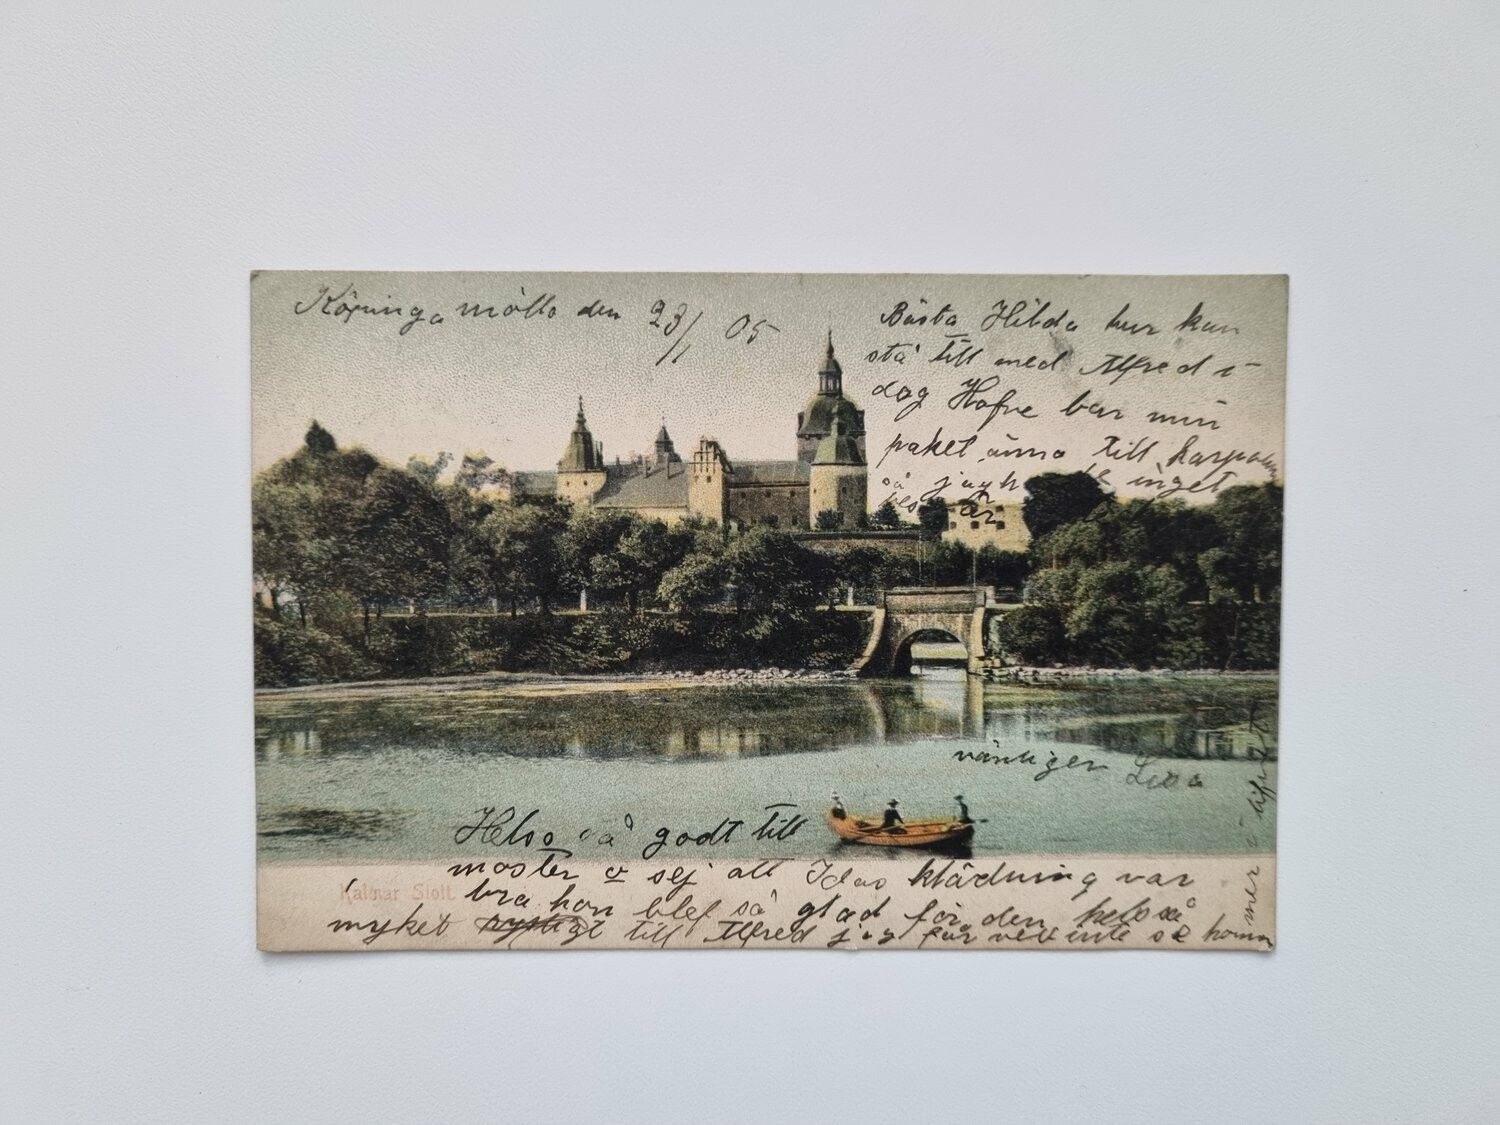 Köpinga mölla den 23/1 05
Bästa Hilda hur kan
stå till med Alfred i
dag Hafve bar min
paket änna till
så jag inget
är
vänligen Lisa
Helso så godt till
moster o sej att Idas klädning var
bra hon blef så glad för den helso så
myket till Alfred jag får väll inte se honom
mer i lifvet
Kalmar Slott.